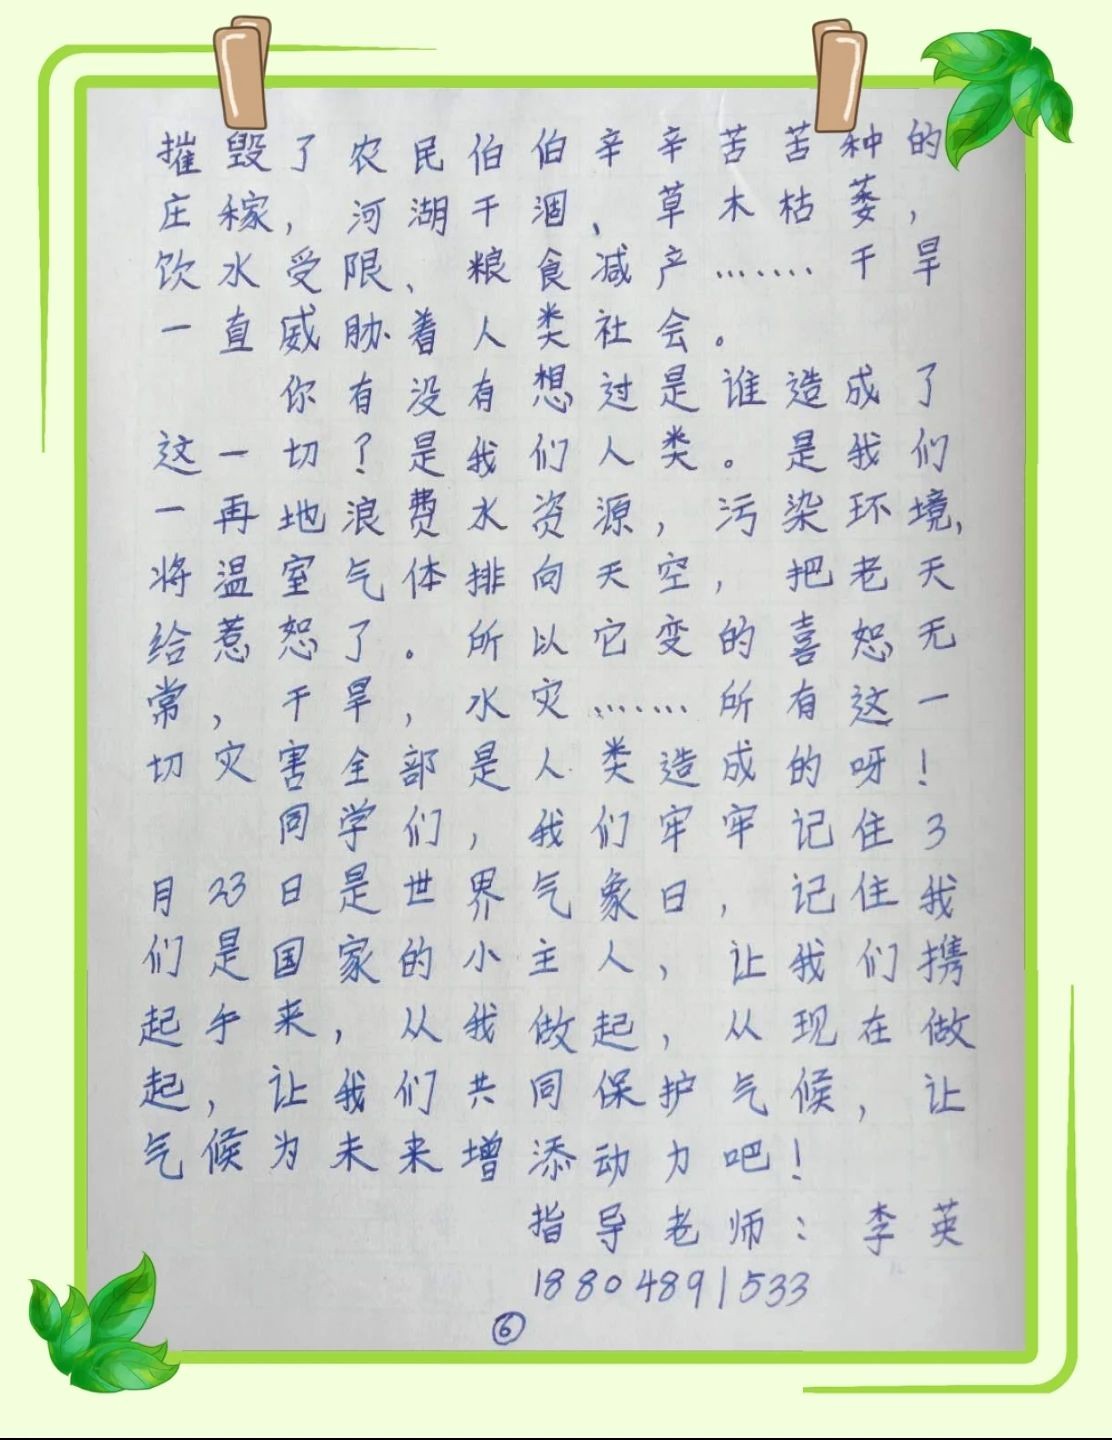 摧毁了农民伯伯辛辛苦苦种的
庄稼，河湖干涸、草木枯萎，
饮水受限、粮食减产……干旱
一直威胁着人类社会。
你有没有想过是谁造成了
这一切？是我们人类。是我们
一再地浪费水资源，污染环境，
将温室气体排向天空，把老天
给惹恕了。所以它变的喜恕无
常，干旱，水灾……所有这一
切灾害全部是人类造成的呀！
同学们，我们牢牢记住3
月23日是世界气象日，记住我
们是国家的小主人，让我们携
起手来，从我做起，从现在做
起，让我们共同保护气候，让
气候为未来增添动力吧！
指导老师：李英
18804891533
⑥